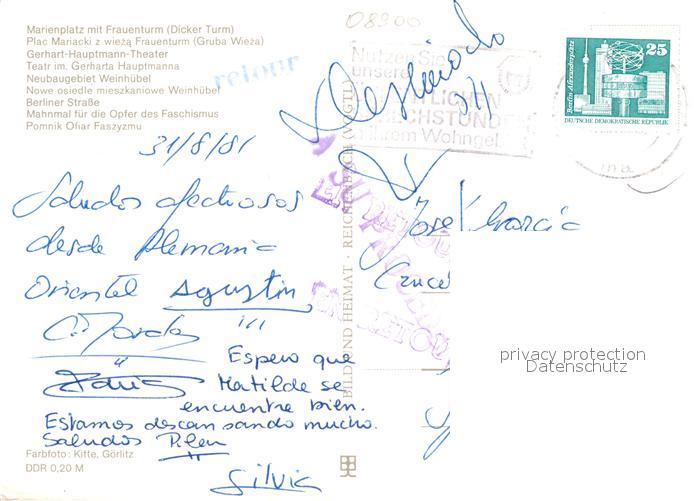 Marienplatz mit Frauenturm (Dicker Turm)
Plac Mariacki z wieżą Frauenturm (Gruba Wieża)
Gerhart-Hauptmann-Theater
Teatr im. Gerharta Hauptmanna
Neubaugebiet Weinhübel
Nowe osiedle mieszkaniowe Weinhübel
Berliner Straße
Mahnmal für die Opfer des Faschismus
Pomnik Ofiar Faszyzmu
retour
08900
Nutzen Sie
unsere
25
Berlin, Alexanderplatz
DEUTSCHE DEMOKRATISCHE REPUBLIK
31/8/81
Saludos afectuosos
desde Alemania
Oriental Agustin
Espero que
Matilde se
encuentre bien.
Estamos descansando mucho.
Saludos
Silvia
José García
BILD UND HEIMAT · REICHENBACH (VOGTL)
privacy protection
Datenschutz
Farbfoto: Kitte, Görlitz
DDR 0,20 M